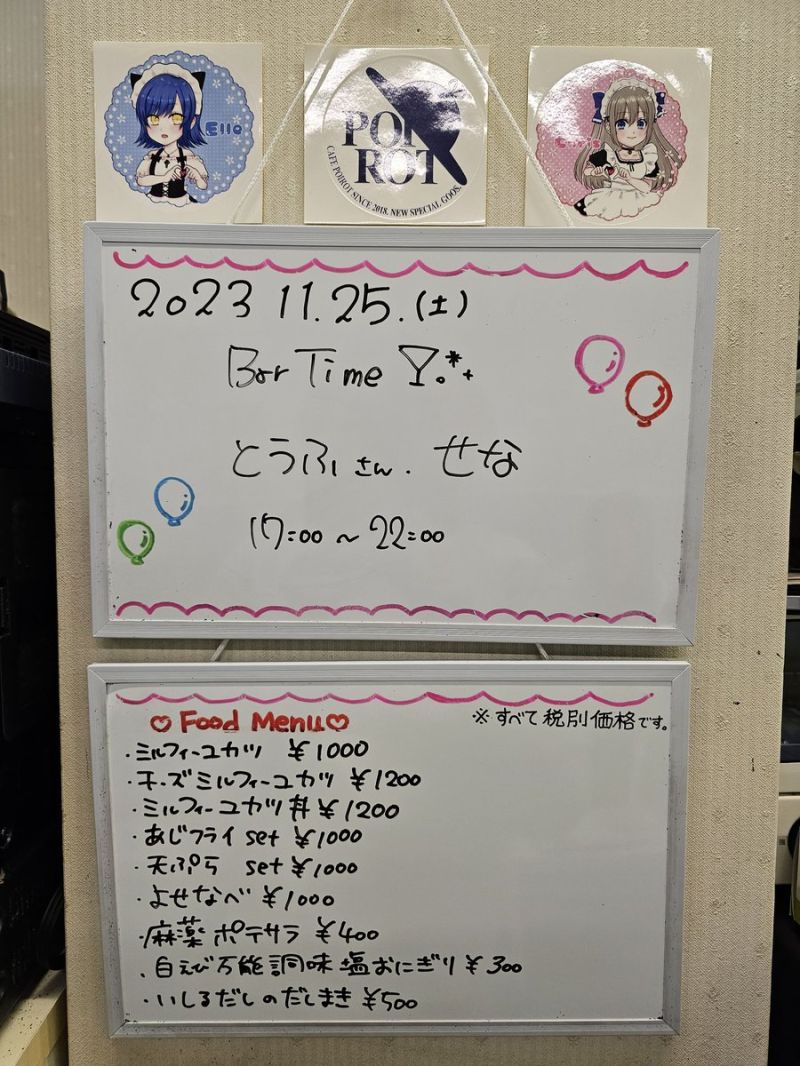 Ello
POIROT
CAFE POIROT SINCE 2018. NEW SPECIAL GOOS.
2023 11.25.(土)
Bar Time
とうふさん. せな
17:00 ~ 22:00
♡Food Menu♡
※すべて税別価格です。
・ミルフィーユカツ ¥1000
・チーズミルフィーユカツ ¥1200
・ミルフィーユカツ丼 ¥1200
・あじフライ set ¥1000
・天ぷら set ¥1000
・よせなべ ¥1000
・麻薬ポテサラ ¥400
・白えび万能調味塩おにぎり ¥300
・いしるだしのだしまき ¥500